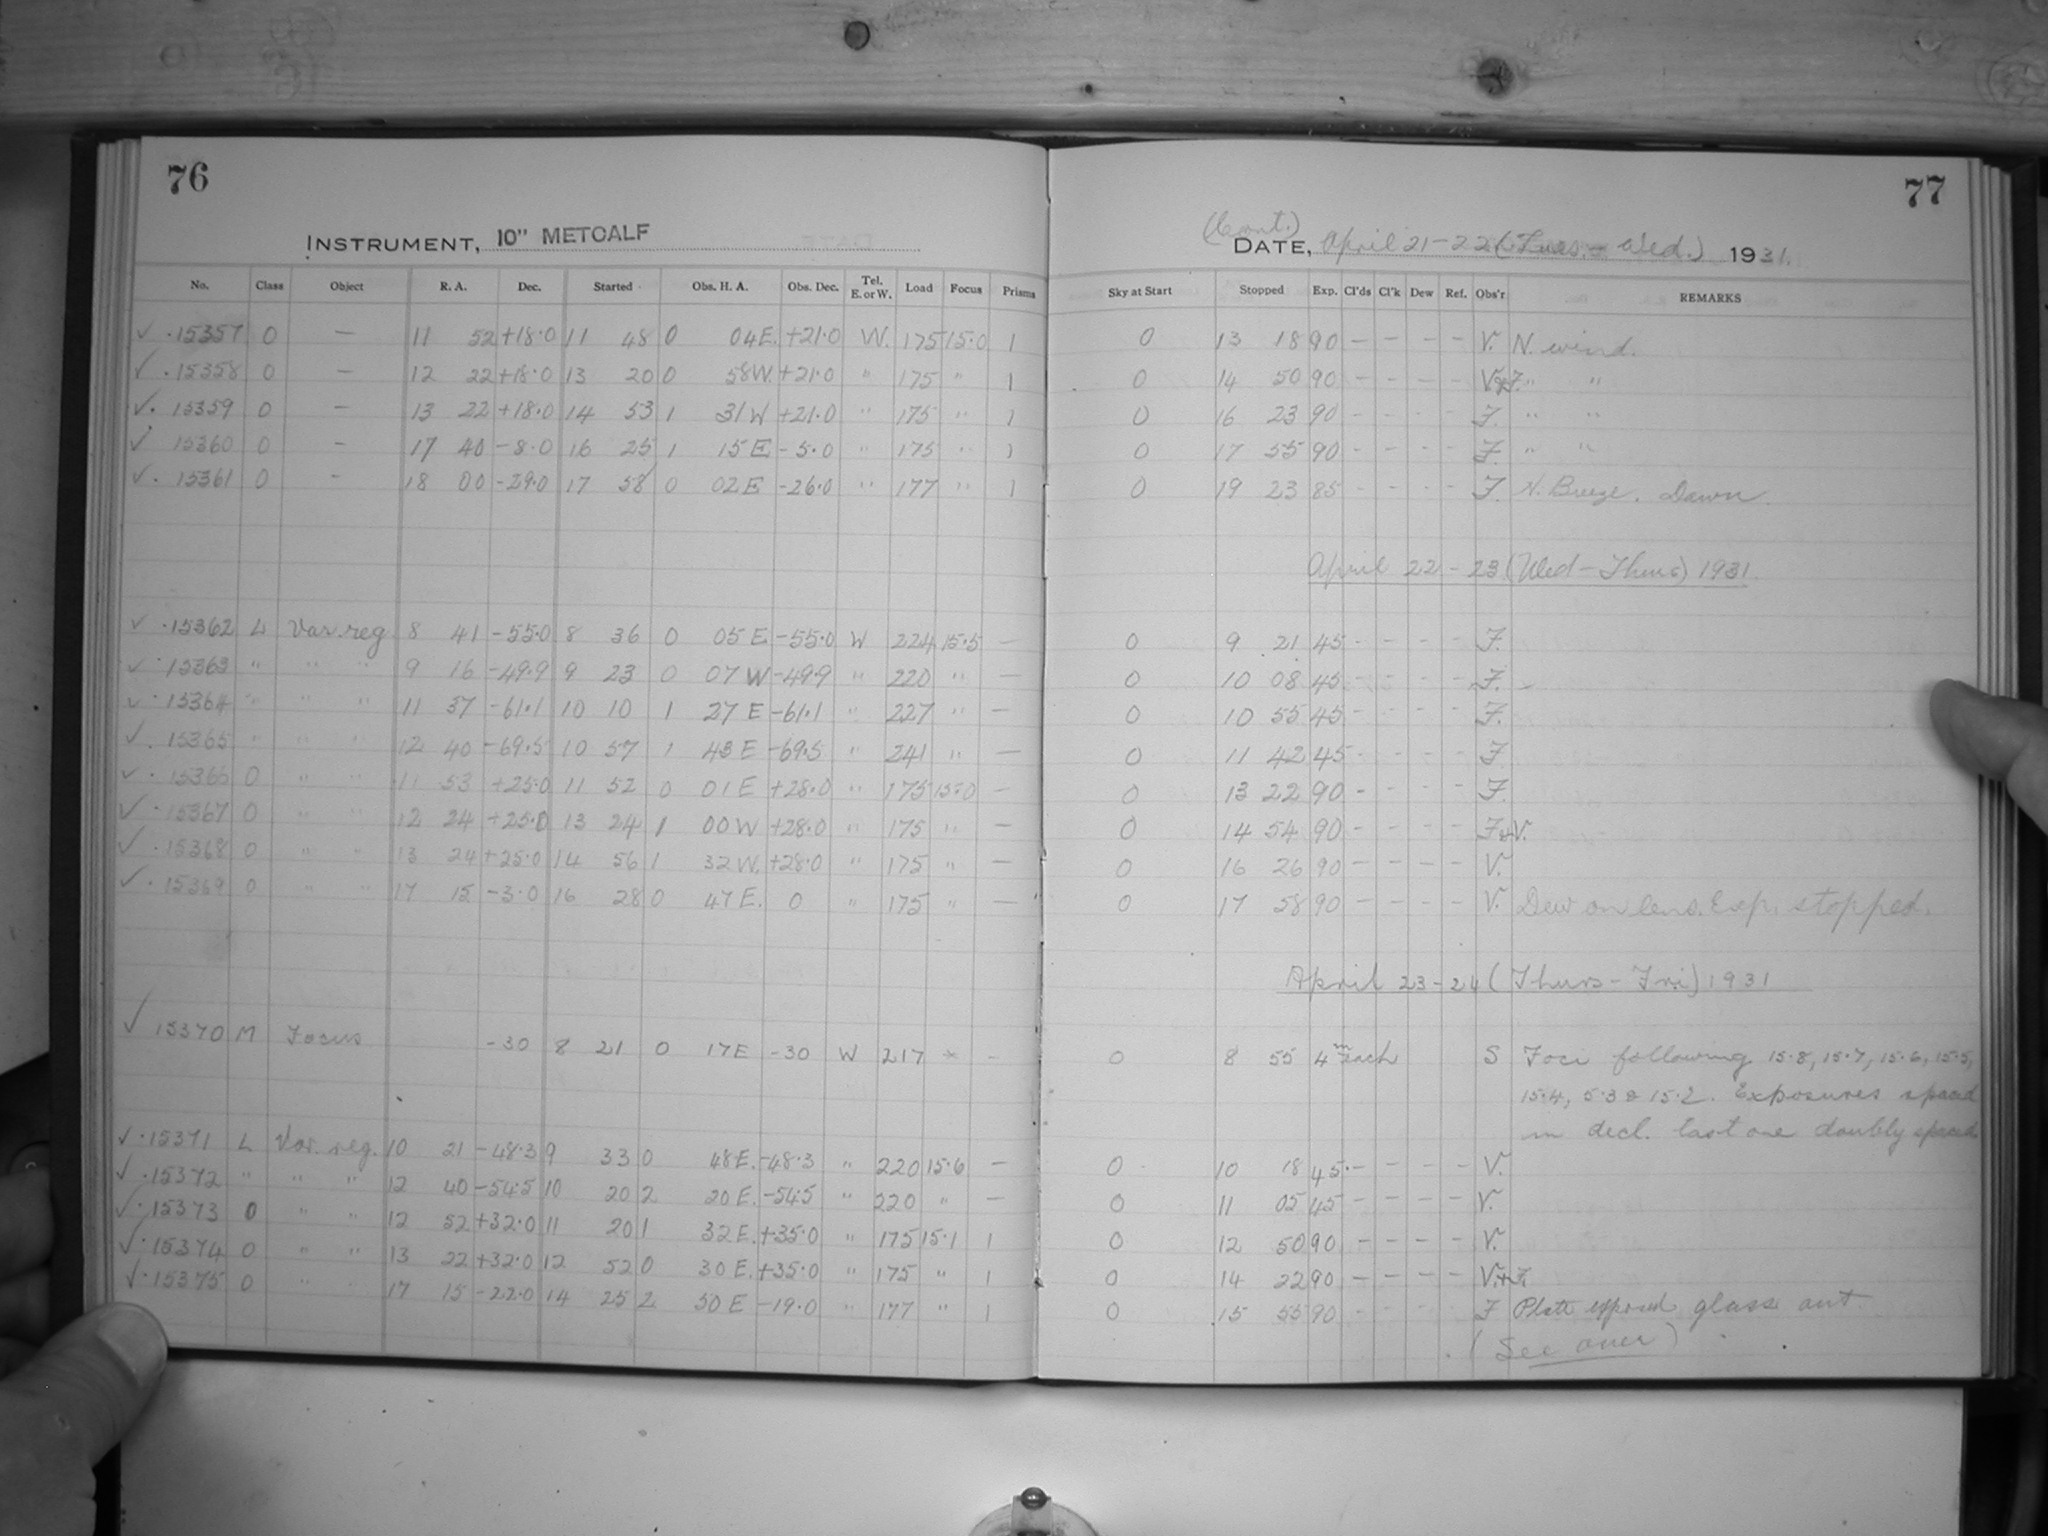 76
INSTRUMENT, 10" METCALF
No. Class Object R. A. Dec. Started Obs. H. A. Obs. Dec. Tel. E. or W. Load Focus Prisms
✓ · 15357 0 — 11 52 +18·0 11 48 0 04 E. +21·0 W. 175 15·0 1
✓ · 15358 0 — 12 22 +18·0 13 20 0 58 W. +21·0 " 175 " 1
✓ · 15359 0 — 13 22 +18·0 14 53 1 31 W +21·0 " 175 " 1
✓ 15360 0 — 17 40 -8·0 16 25 1 15 E -5·0 " 175 " 1
✓ · 15361 0 — 18 00 -29·0 17 58 0 02 E -26·0 " 177 " 1
✓ · 15362 L Var. reg 8 41 -55·0 8 36 0 05 E -55·0 W 224 15·5 —
✓ · 15363 " " " 9 16 -49·9 9 23 0 07 W -49·9 " 220 " —
✓ · 15364 " " " 11 37 -61·1 10 10 1 27 E -61·1 " 227 " —
✓ · 15365 " " " 12 40 -69·5 10 57 1 43 E -69·5 " 241 " —
✓ · 15366 0 " " 11 53 +25·0 11 52 0 01 E +28·0 " 175 15·0 —
✓ · 15367 0 " " 12 24 +25·0 13 24 1 00 W +28·0 " 175 " —
✓ · 15368 0 " " 13 24 +25·0 14 56 1 32 W. +28·0 " 175 " —
✓ · 15369 0 " " 17 15 -3·0 16 28 0 47 E. 0 " 175 " —
✓ 15370 M Focus -30 8 21 0 17 E -30 W 217 * -
✓ · 15371 L Var. reg. 10 21 -48·3 9 33 0 48 E. -48·3 " 220 15·6 —
✓ · 15372 " " " 12 40 -54·5 10 20 2 20 E. -54·5 " 220 " —
✓ · 15373 0 " " 12 52 +32·0 11 20 1 32 E. +35·0 " 175 15·1 1
✓ · 15374 0 " " 13 22 +32·0 12 52 0 30 E. +35·0 " 175 " 1
✓ · 15375 0 " " 17 15 -22·0 14 25 2 50 E -19·0 " 177 " 1
77
(Cont.)
DATE, April 21-22 (Tues. - Wed.) 1931.
Sky at Start Stopped Exp. Cl'ds Cl'k Dew Ref. Obs'r REMARKS
0 13 18 90 — — — — V. N. wind.
0 14 50 90 — — — — V+F. " "
0 16 23 90 - - - - F. " "
0 17 55 90 - - - - F. " "
0 19 23 85 - - - - F. N. Breeze. Dawn.
April 22 - 23 (Wed - Thurs) 1931.
0 9 21 45 - - - - F.
0 10 08 45 - - - - F. -
0 10 55 45 - - - - F.
0 11 42 45 - - - - F.
0 13 22 90 - - - - F.
0 14 54 90 - - - - F+V.
0 16 26 90 — — — — V.
0 17 58 90 — — — — V. Dew on lens. Exp. stopped.
April 23 - 24 (Thurs - Fri) 1931
0 8 55 4m Each S Foci following 15·8, 15·7, 15·6, 15·5,
15·4, 5·3 & 15·2. Exposures spaced
in decl. last one doubly spaced
0 10 18 45 · — — — — V.
0 11 05 45 — — — — V.
0 12 50 90 — — — — V.
0 14 22 90 — — — — V.+F.
0 15 55 90 - - - - F Plate exposed glass out.
(See over)